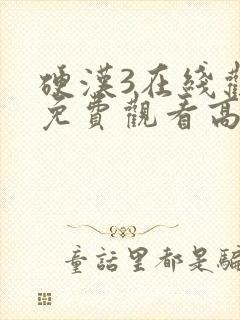 硬漢3在綫觀
免費觀看高
童話里都是騙